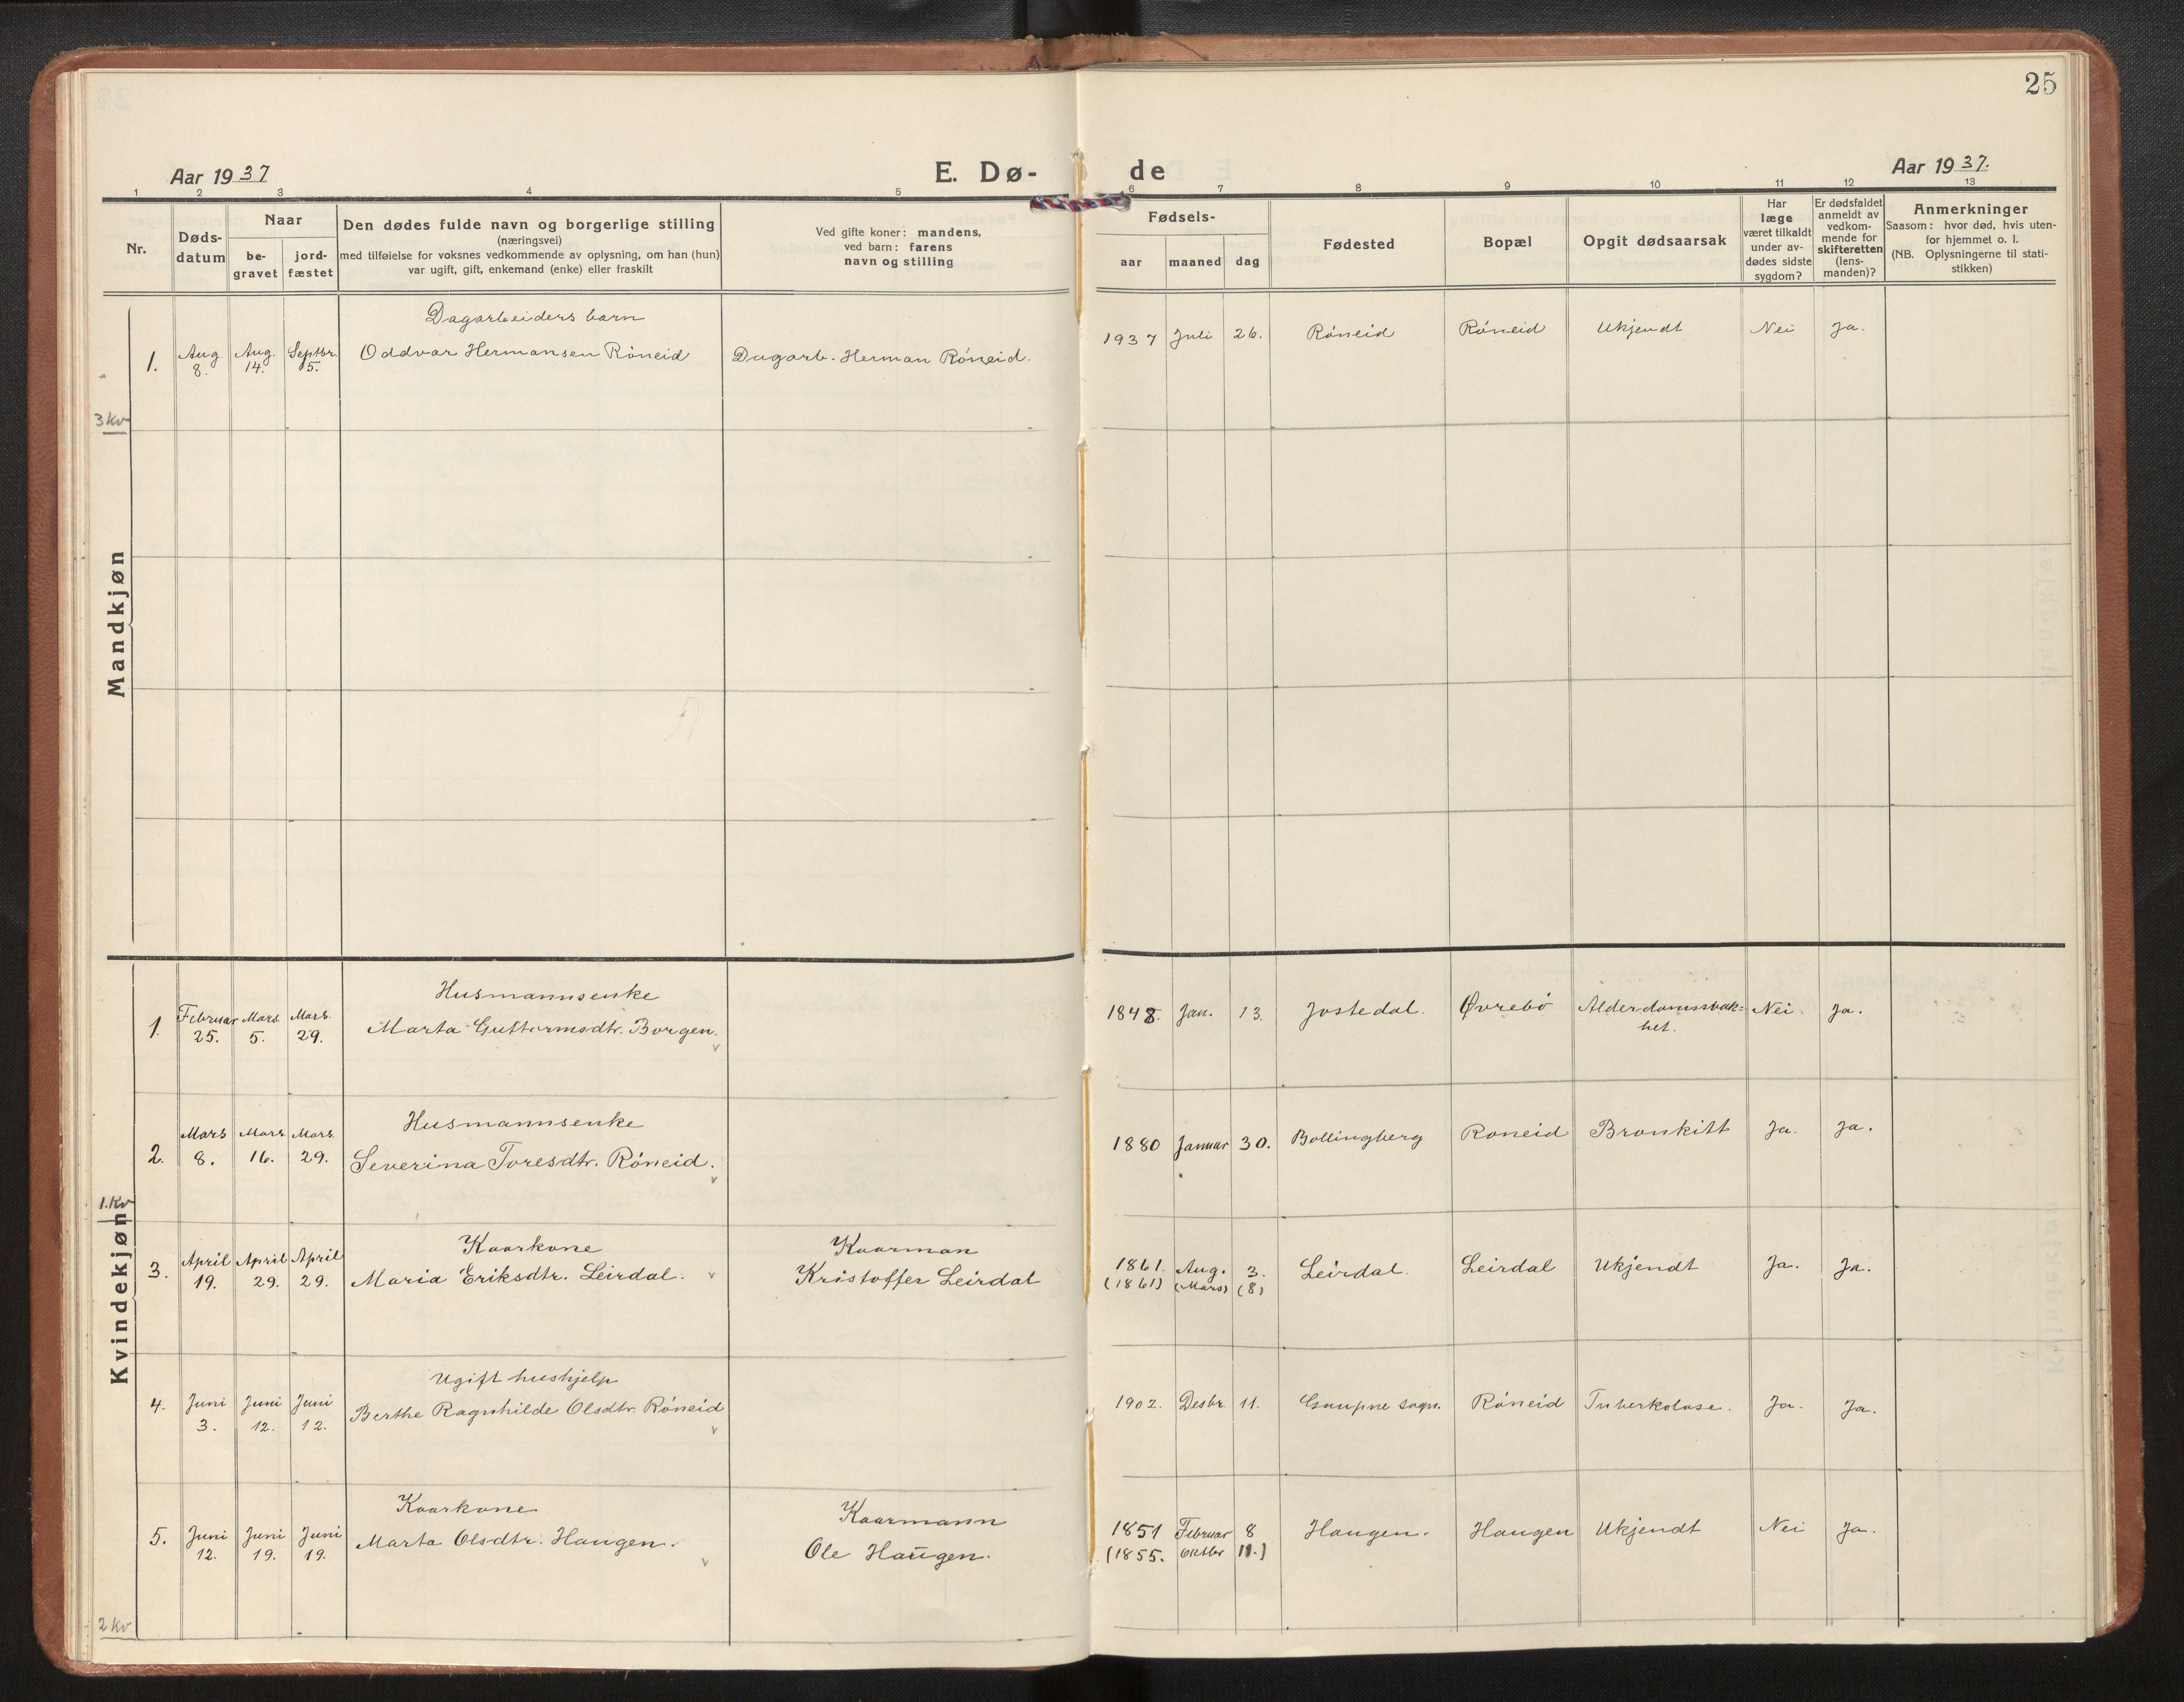 25
Aar 1937
E. Dø-
de
Aar 1937.
1 2 3 4 5 6 7 8 9 10 11 12 13
Nr.
Døds-
datum
Naar
be-
gravet
jord-
fæstet
Den dødes fulde navn og borgerlige stilling
(næringsvei)
med tilføielse for voksnes vedkommende av oplysning, om han (hun)
var ugift, gift, enkemand (enke) eller fraskilt
Ved gifte koner: mandens,
ved barn: farens
navn og stilling
Fødsels-
aar maaned dag
Fødested
Bopæl
Opgit dødsaarsak
Har
læge
været tilkaldt
under av-
dødes sidste
sygdom?
Er dødsfaldet
anmeldt av
vedkom-
mende for
skifteretten
(lens-
manden)?
Anmerkninger
Saasom: hvor død, hvis uten-
for hjemmet o. l.
(NB. Oplysningerne til stati-
stikken)
Mandkjøn
Dagarbeiders barn
1. Aug. 8. Aug. 14. Septbr. 5. Oddvar Hermansen Röneid Dagarb. Herman Röneid. 1937 Juli 26. Röneid Röneid Ukjendt Nei Ja.
3 Kv
Kvindekjøn
Husmannsenke
1. Februar 25. Mars 5. Mars. 29. Marta Guttormsdtr. Borgen. 1848. Jan. 13. Jostedal. Øvrebö Alderdomssvak=
het. Nei Ja.
Husmannsenke
2. Mars 8. Mars. 16. Mars. 29. Severina Toresdtr. Röneid. 1880 Januar 30. Bollingberg Roneid Bronkitt Ja. Ja.
1. Kv
Kaarkone Kaarman
3. April 19. April 29. April 29. Maria Eriksdtr. Leirdal. Kristoffer Leirdal 1861. Aug. 3. Leirdal. Leirdal Ukjendt Ja. Ja.
(1861) (Mars) (8)
Ugift hushjelp
4. Juni 3. Juni 12. Juni 12. Berthe Ragnhilde Olsdtr. Röneid 1902. Desbr. 11. Gaupne sogn. Röneid Tuberkolose. Ja. Ja.
Kaarkone Kaarmann
5. Juni 12. Juni 19. Juni 19. Marta Olsdtr. Haugen. Ole Haugen. 1851 Februar 8 Haugen. Haugen Ukjendt Nei Ja.
(1855. Oktbr 11.)
2 Kv